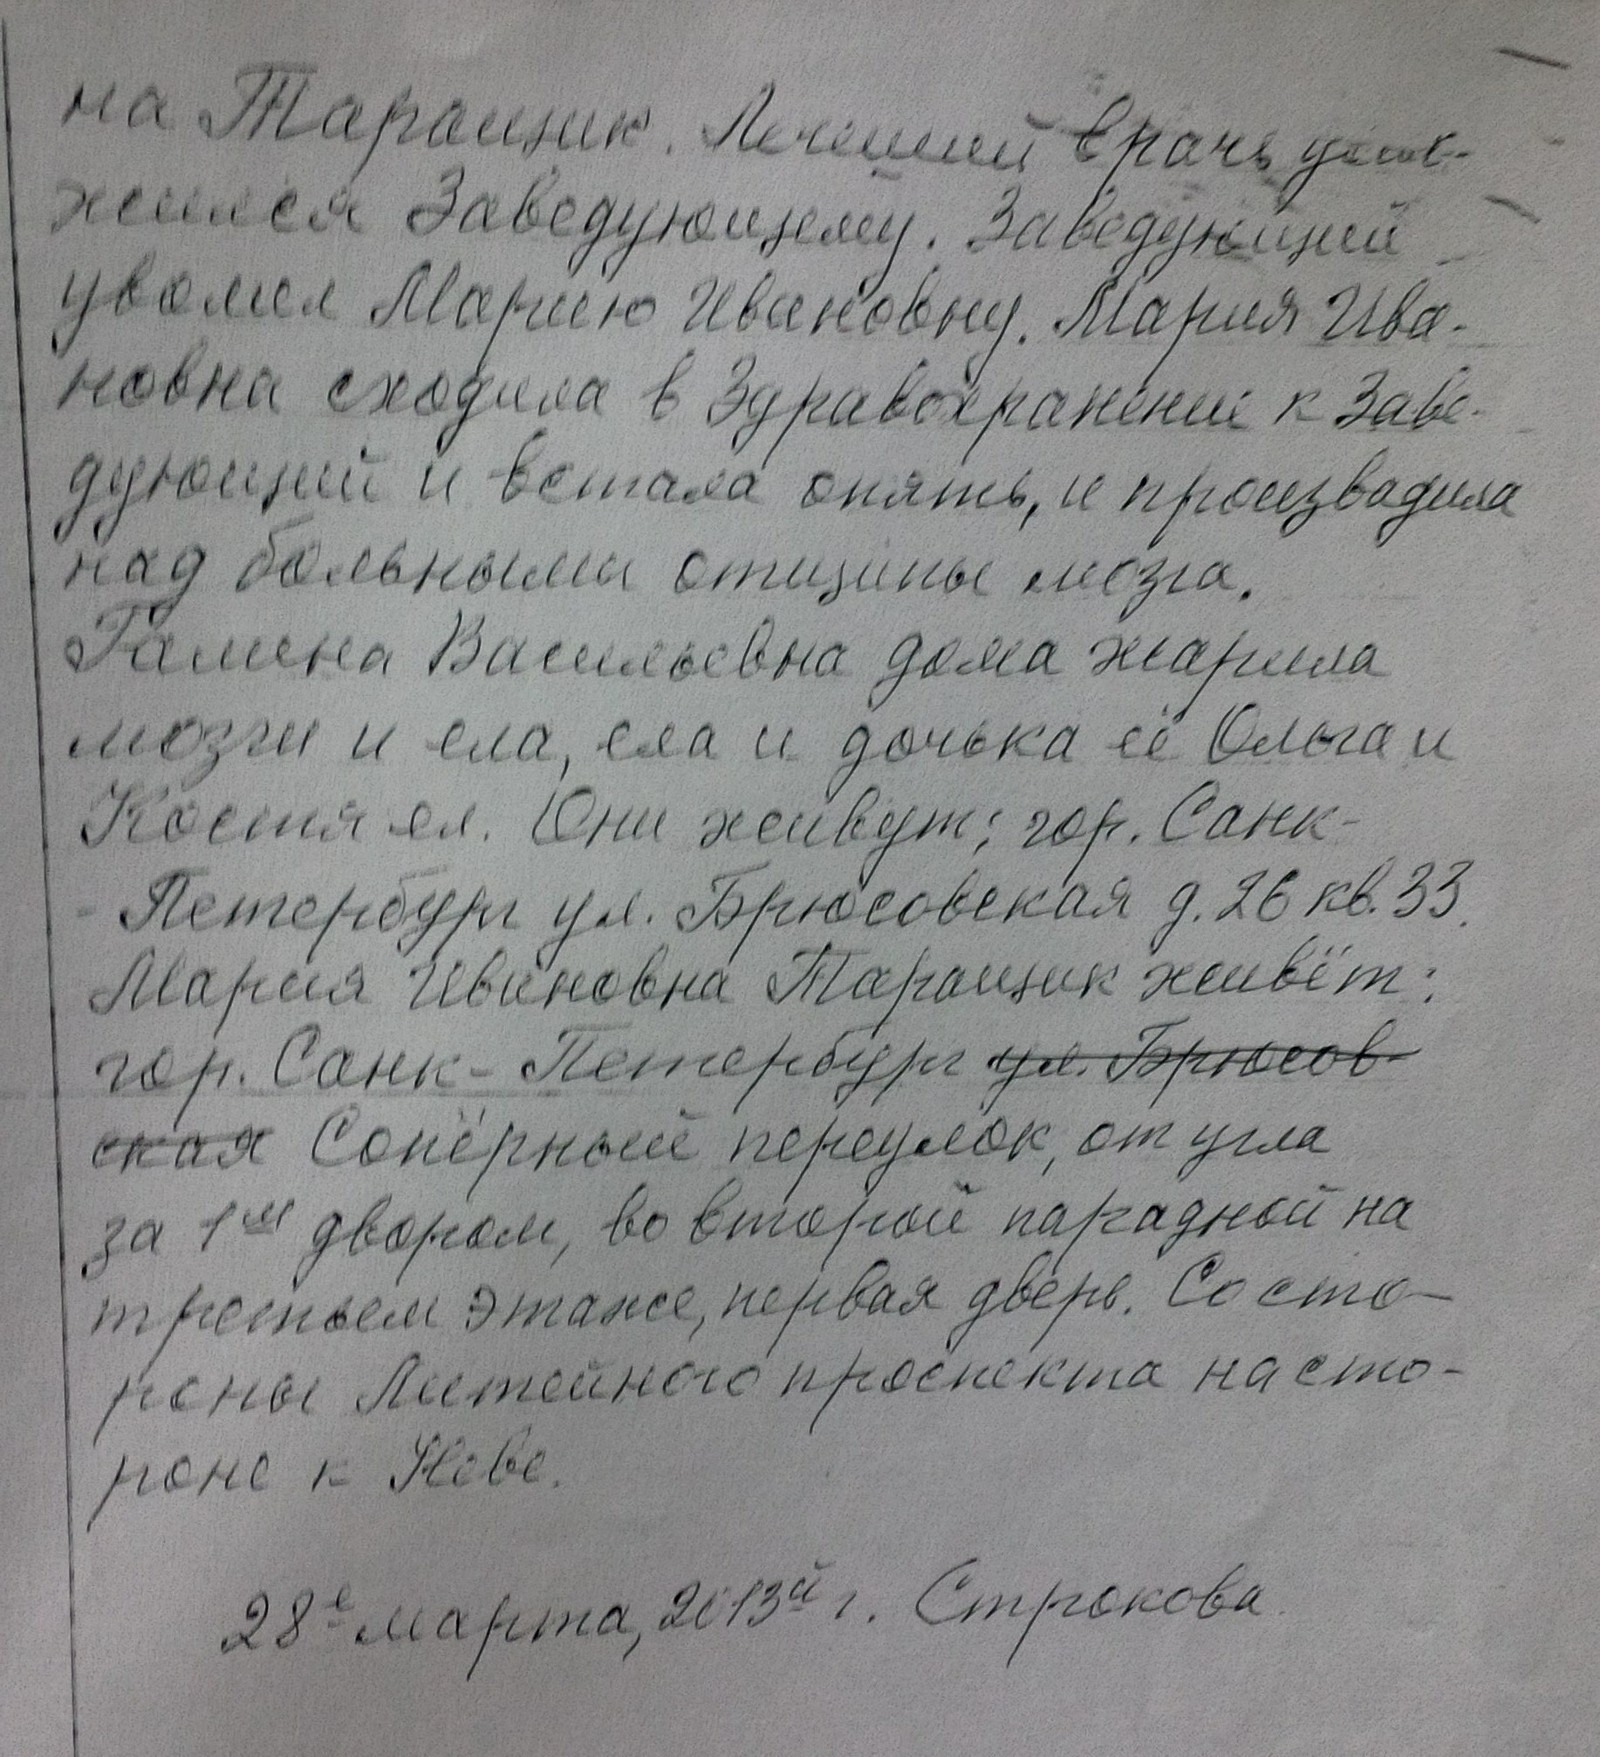 на Таращик. Лечащий врачь удов-
жился Заведующему. Заведующий
уволил Марию Ивановну. Мария Ива-
новна сходила в Здравохранение к Заве-
дующий и встала опять, и произвадила
над больными отщипы мозга.
Галина Васильевна дома жарила
мозги и ела, ела и дочька её Ольга и
Костя ел. Они живут; гор. Санк-
-Петербург ул. Брюсовская д. 26 кв. 33.
Мария Ивановна Таращик живёт:
гор. Санк-Петербург ул. Брюсов-
ская Сапёрный переулок, от угла
за 1ым двором, во второй парадной на
третьем этаже, первая дверь. Со сто-
роны Литейного проспекта на сто-
роне к Неве.
28е марта, 2013й г. Строкова